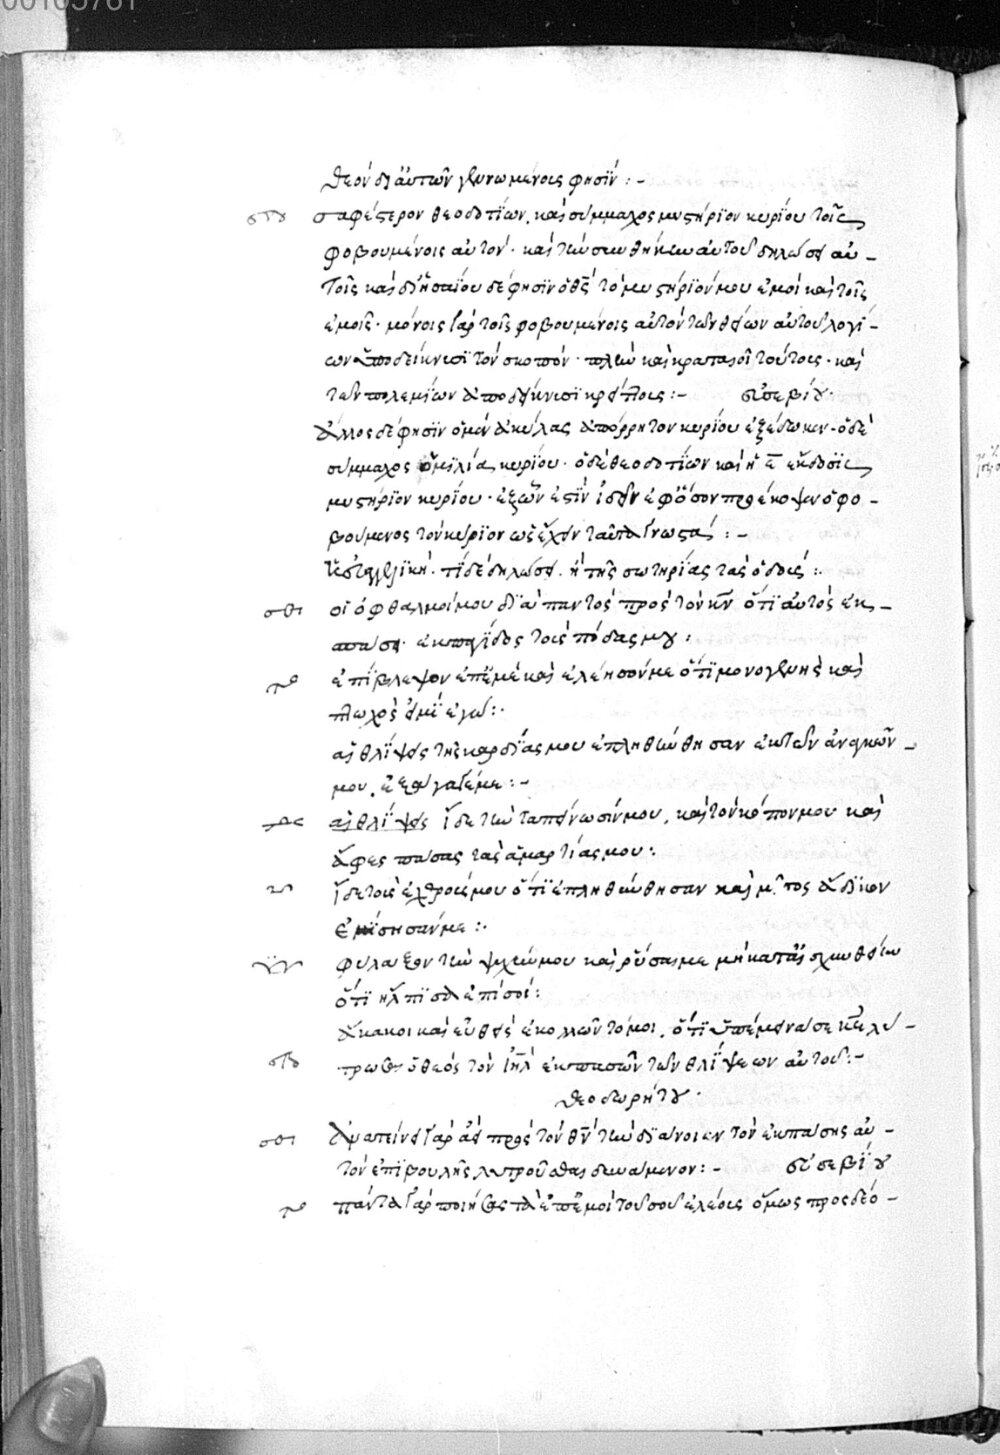 00105761
θεὸν δι' αὐτῶν γενομένοις φησίν :-
σαφέστερον θεοδοτίων, καὶ σύμμαχος μυστήριον κυρίου τοῖς
φοβουμένοις αὐτόν· καὶ τὴν συνθήκην αὐτοῦ δηλώσει αὐ-
τοῖς καὶ δι' ἠσαΐου δέ φησιν ὁ θς̅ τὸ μυστήριόν μου ἐμοὶ καὶ τοῖς
ἐμοῖς· μόνοις γὰρ τοῖς φοβουμένοις αὐτὸν τῶν θείων αὐτοῦ λογί-
ων ὑποδείκνυσι τὸν σκοπόν· καὶ κραταιοῖ τούτοις· καὶ
τῶν πολεμίων ἀποδείκνυσι κρείττοις :- εὐσεβίου·
ἄλλος δέ φησιν ὁ μὲν ἀκύλας ἀπόρρητον κυρίου ἐξέδωκεν· ὁ δὲ
σύμμαχος ὁμιλία κυρίου· ὁ δὲ θεοδοτίων καὶ ἡ ε̅ ἔκδοσις
μυστήριον κυρίου· ἐξ ὧν ἐστὶν ἰδεῖν ἐφ' ὅσον προέκοψεν ὁ φο-
βούμενος τὸν κύριον ὡς ἔχειν ταῦτα γνωστά :-
τί δὲ δηλώσει· ἢ τῆς σωτηρίας τὰς ὁδούς :·
οἱ ὀφθαλμοί μου διαπαντὸς πρὸς τὸν κν̅ ὅτι αὐτὸς ἐκ-
σπάσει ἐκ παγίδος τοὺς πόδας μου :
ἐπίβλεψον ἐπ' ἐμὲ καὶ ἐλέησόν με ὅτι μονογενὴς καὶ
πτωχὸς εἰμὶ ἐγώ :·
αἱ θλίψεις τῆς καρδίας μου ἐπληθύνθησαν ἐκ τῶν ἀναγκῶν-
μου, ἐξάγαγέ με :-
αἱ θλίψεις ἴδε τὴν ταπείνωσίν μου, καὶ τὸν κόπον μου καὶ
ἄφες πάσας τὰς ἁμαρτίας μου :·
ἴδε τοὺς ἐχθρούς μου ὅτι ἐπληθύνθησαν καὶ μῖσος ἄδικον
ἐμίσησάν με :·
φύλαξον τὴν ψυχήν μου καὶ ῥῦσαί με μὴ καταισχυνθείην
ὅτι ἤλπισα ἐπὶ σοί :
ἄκακοι καὶ εὐθεῖς ἐκολλῶντό μοι, ὅτι ὑπέμεινά σε κε̅ λύ-
τρωσαι ὁ θεὸς τὸν ιηλ̅ ἐκ πασῶν τῶν θλίψεων αὐτοῦ :-
θεοδωρήτου·
ἀποτείνει γὰρ ἀεὶ πρὸς τὸν θν̅ τὴν διάνοιαν τὸν ἐκ πάσης αὐ-
τὸν ἐπιβουλῆς λυτροῦσθαι δυνάμενον :- εὐσεβίου
πάντα γὰρ ποιήσας τὰ ἐπ' ἐμοὶ τοῦ σοῦ ἐλέους ὅμως προσδέο-